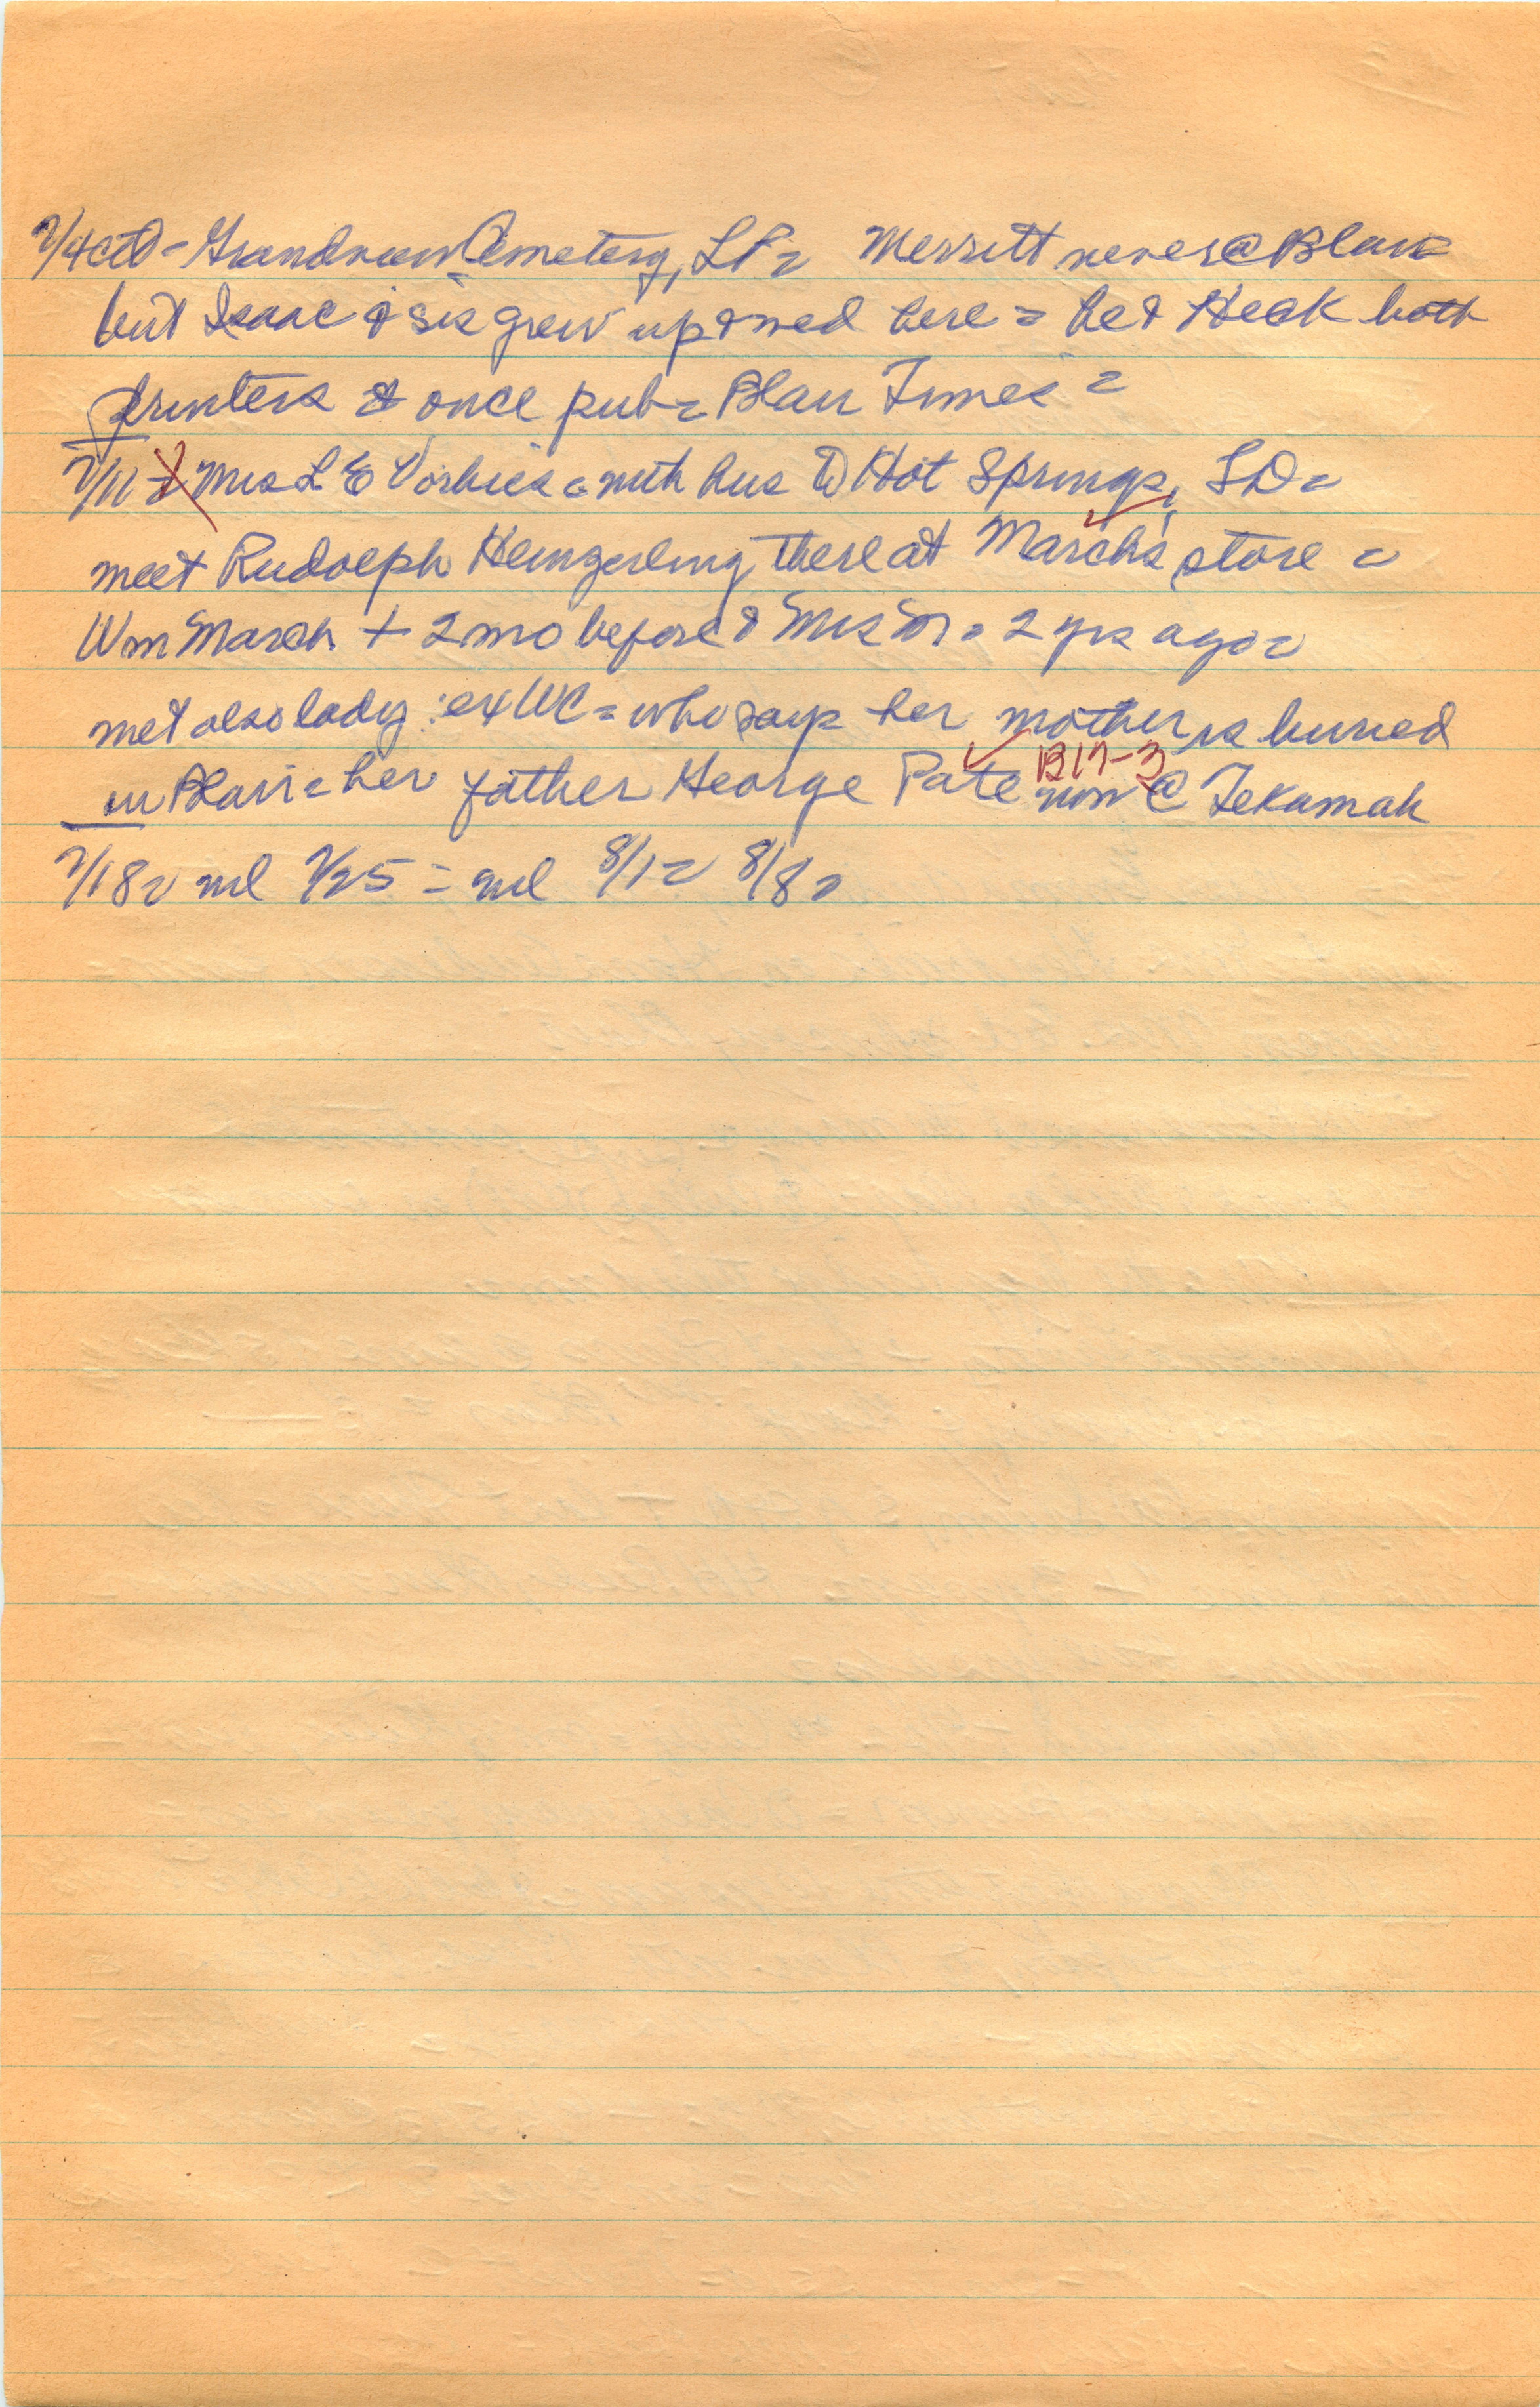 7/4 ctd - Grandview Cemetery, LP = Merritt never @ Blair =
but Isaac & sis grew up & med here = he & Heck both
printers & once pub = Blair Times =
7/11 = Mrs L E Vorhies = with hus to Hot Springs, SD =
meet Rudolph Hengerling there at March's store =
Wm March + 2 mo before & Mrs M = 2 yrs ago =
met also lady : ex WC = who says her mother is buried
in Blair = her father George Pate B17-3 now @ Tekamah
7/18 = nil 7/25 = nil 8/1 = 8/8 =